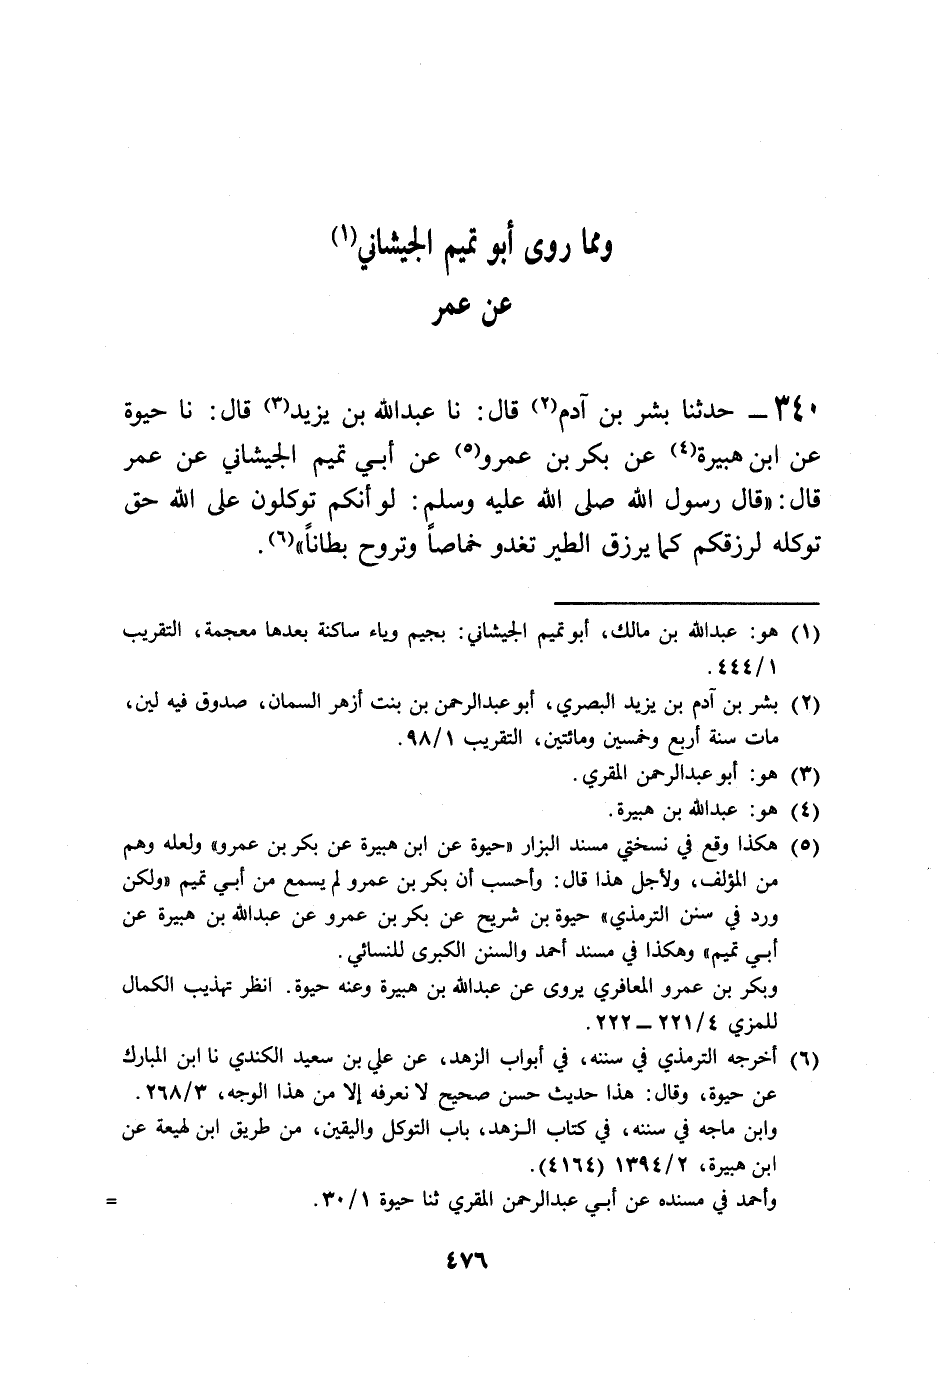 ومما روى أبو تميم الجيشاني(١)
عن عمر
٣٤٠ ــ حدثنا بشر بن آدم(٢) قال: نا عبدالله بن يزيد(٣) قال: نا حيوة
عن ابن هبيرة(٤) عن بكر بن عمرو(٥) عن أبـي تميم الجيشاني عن عمر
قال: «قال رسول الله صلى الله عليه وسلم: لو أنكم توكلون على الله حق
توكله لرزقكم كما يرزق الطير تغدو خماصاً وتروح بطاناً»(٦).
(١) هو: عبدالله بن مالك، أبو تميم الجيشاني: بجيم وياء ساكنة بعدها معجمة، التقريب
٤٤٤/١.
(٢) بشر بن آدم بن يزيد البصري، أبو عبدالرحمن بن بنت أزهر السمان، صدوق فيه لين،
مات سنة أربع وخمسين ومائتين، التقريب ٩٨/١.
(٣) هو: أبو عبدالرحمن المقري.
(٤) هو: عبدالله بن هبيرة.
(٥) هكذا وقع في نسختي مسند البزار «حيوة عن ابن هبيرة عن بكر بن عمرو» ولعله وهم
من المؤلف، ولأجل هذا قال: وأحسب أن بكر بن عمرو لم يسمع من أبـي تميم «ولكن
ورد في سنن الترمذي» حيوة بن شريح عن بكر بن عمرو عن عبدالله بن هبيرة عن
أبـي تميم» وهكذا في مسند أحمد والسنن الكبرى للنسائي.
وبكر بن عمرو المعافري يروى عن عبدالله بن هبيرة وعنه حيوة. انظر تهذيب الكمال
للمزي ٢٢١/٤ ــ ٢٢٢.
(٦) أخرجه الترمذي في سننه، في أبواب الزهد، عن علي بن سعيد الكندي نا ابن المبارك
عن حيوة، وقال: هذا حديث حسن صحيح لا نعرفه إلا من هذا الوجه، ٢٦٨/٣.
وابن ماجه في سننه، في كتاب الـزهد، باب التوكل واليقين، من طريق ابن لهيعة عن
ابن هبيرة، ١٣٩٤/٢ (٤١٦٤).
وأحمد في مسنده عن أبـي عبدالرحمن المقري ثنا حيوة ٣٠/١. =
٤٧٦